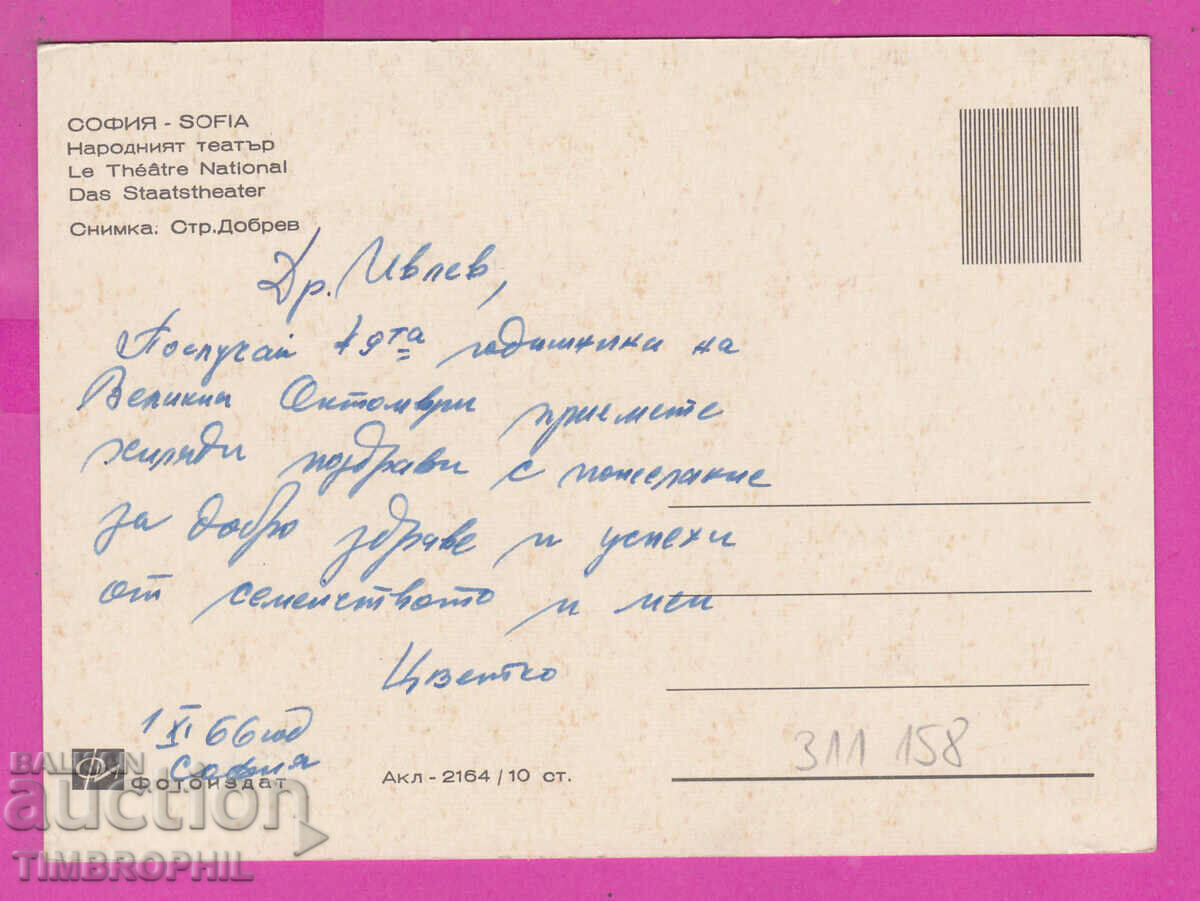 СОФИЯ - SOFIA
Народният театър
Le Théâtre National
Das Staatstheater
Снимка: Стр.Добрев
Др. Ивлев,
По случай 49та годишнина на
Великий Октомври приемете
хиляди поздрави с пожелание
за добро здраве и успехи
от семейството и мен
Цветко
1 XI 66 год
София
Фотоиздат
Акл - 2164 / 10 ст.
311 158
BALKAN
auction
TIMBROPHIL